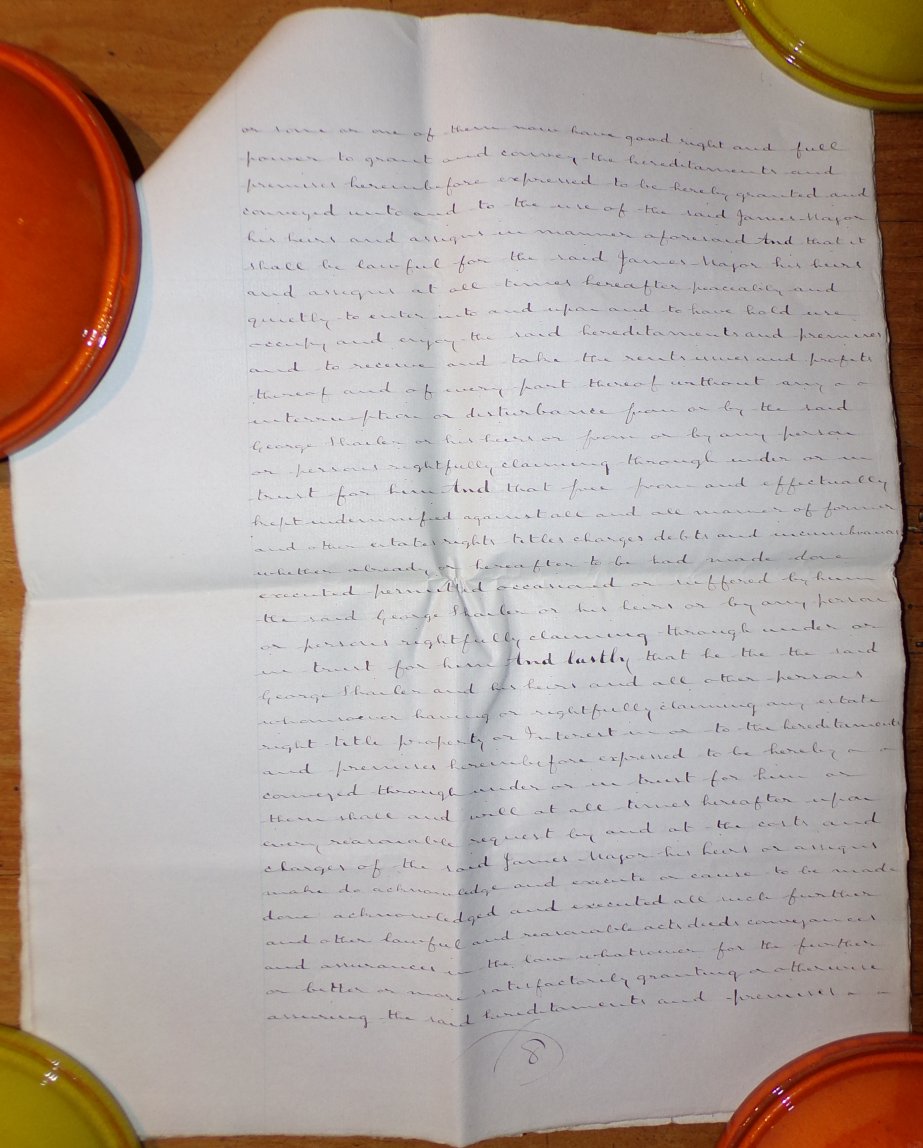 or some or one of them now have good right and full
power to grant and convey the hereditaments and
premises hereinbefore expressed to be hereby granted and
conveyed unto and to the use of the said James Major
his heirs and assigns in manner aforesaid And that it
shall be lawful for the said James Major his heirs
and assigns at all times hereafter peaceably and
quietly to enter into and upon and to have hold use
occupy and enjoy the said hereditaments and premises
and to receive and take the rents issues and profits
thereof and of every part thereof without any
interruption or disturbance from or by the said
George Shailer or his heirs or from or by any person
or persons rightfully claiming through under or in
trust for him And that free from and effectually
kept indemnified against all and all manner of former
and other estates rights titles charges debts and incumbrances
whether already or hereafter to be had made done
executed permitted occasioned or suffered by him
the said George Shailer or his heirs or by any person
or persons rightfully claiming through under or
in trust for him And lastly that he the the said
George Shailer and his heirs and all other persons
whomsoever having or rightfully claiming any estate
right title property or Interest in or to the hereditaments
and premises hereinbefore expressed to be hereby
conveyed through under or in trust for him or
them shall and will at all times hereafter upon
every reasonable request by and at the costs and
charges of the said James Major his heirs or assigns
make do acknowledge and execute or cause to be made
done acknowledged and executed all such further
and other lawful and reasonable acts deeds conveyances
and assurances in the law whatsoever for the further
or better or more satisfactorily granting or otherwise
assuring the said hereditaments and premises
8